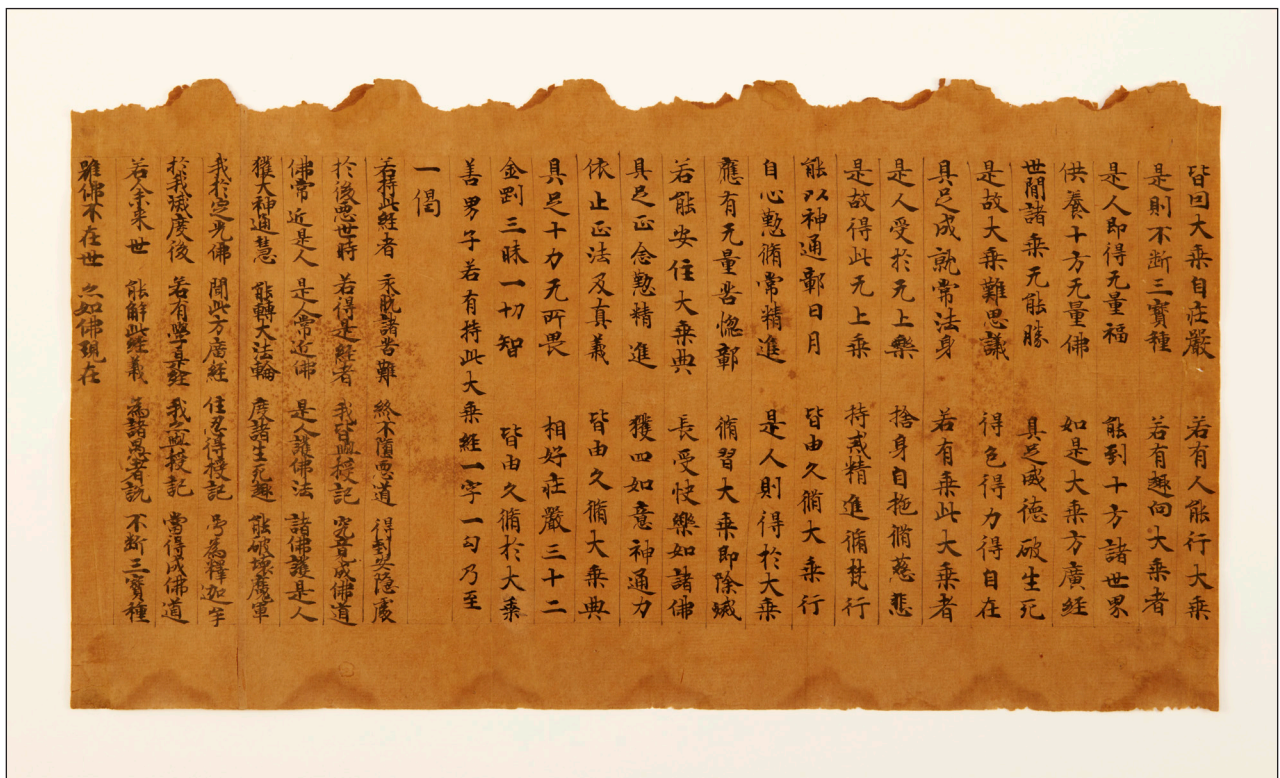 皆因大乘自莊嚴 若有人能行大乘
是則不斷三寳種 若有趣向大乘者
是人即得无量福 能到十方諸世界
供養十方无量佛 如是大乘方廣經
世間諸乘无能勝 具足威德破生死
是故大乘難思議 得色得力得自在
具足成就常法身 若有乘此大乘者
是人受於无上樂 捨身自施脩慈悲
是故得此无上乘 持戒精進脩梵行
能以神通鄣日月 皆由久脩大乘行
自心懃脩常精進 是人則得於大乘
應有无量苦惚鄣 脩習大乘即除滅
若能安住大乘典 長受快樂如諸佛
具足正念懃精進 獲四如意神通力
依止正法及真義 皆由久脩大乘典
具足十力无所畏 相好莊嚴三十二
金剛三昧一切智 皆由久脩於大乘
善男子若有持此大乘經一字一勾乃至
一偈
若持此經者 永脱諸苦難 終不墮惡道 得到安隱處
於後惡世時 若得是經者 我皆與授記 究竟成佛道
佛常近是人 是人常近佛 是人護佛法 諸佛護是人
獲大神通慧 能轉大法輪 度諸生死趣 能破壞魔軍
我於定光佛 聞此方廣經 住忍得授記 号爲釋迦牟
於我滅度後 若有學是經 我亦與授記 當得成佛道
若余来世 能解此經義 爲諸愚者說 不断三寳種
雖佛不在世 亦如佛現在